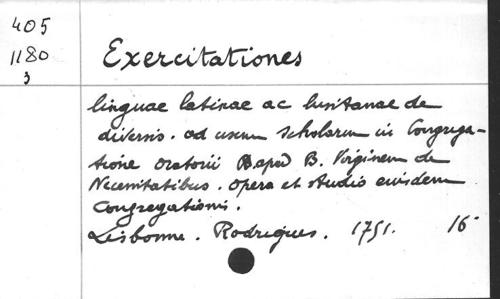 405
1180
3
Exercitationes
linguae latinae ac lusitanae de
diversis. ad usum scholarum in Congrega-
tione oratorii B. Virginem de
Necessitatibus. opera et studio eiusdem
Congregationis.
Lisbonne. Rodrigues. 1751. 16°